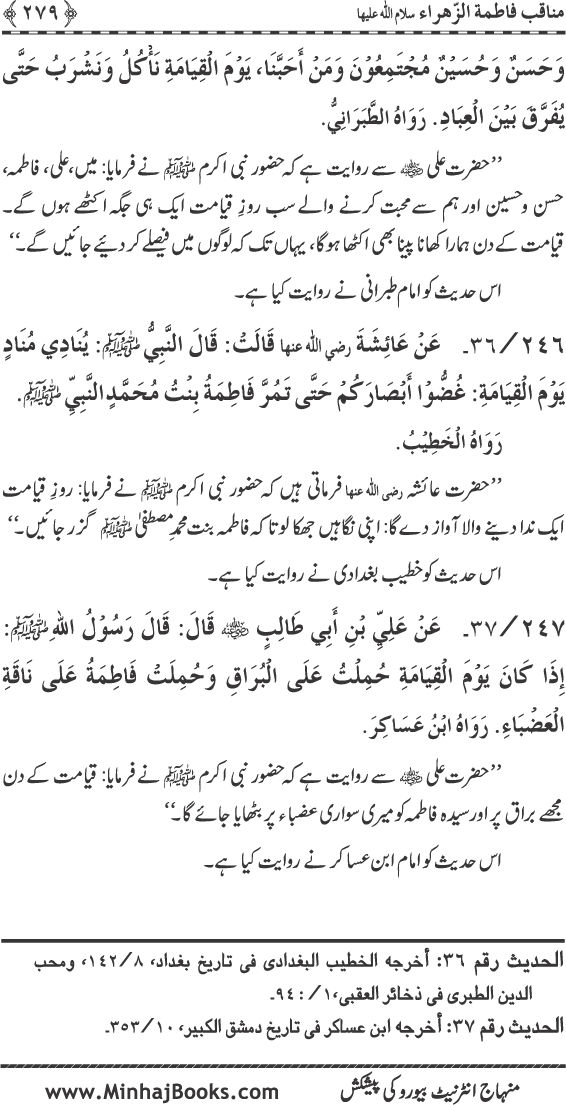 مناقب فاطمة الزّهراء سلام الله عليها ﴿۲۷۹﴾
وَحَسَنٌ وَحُسَيْنٌ مُجْتَمِعُوْنَ وَمَنْ أَحَبَّنَا، يَوْمَ الْقِيَامَةِ نَأْكُلُ وَنَشْرَبُ حَتَّى
يُفَرَّقَ بَيْنَ الْعِبَادِ. رَوَاهُ الطَّبَرَانِيُّ.
’’حضرت علی ﷺ سے روایت ہے کہ حضور نبی اکرم ﷺ نے فرمایا: میں، علی، فاطمہ،
حسن وحسین اور ہم سے محبت کرنے والے سب روزِ قیامت ایک ہی جگہ اکٹھے ہوں گے۔
قیامت کے دن ہمارا کھانا پینا بھی اکٹھا ہوگا، یہاں تک کہ لوگوں میں فیصلے کر دئیے جائیں گے۔‘‘
اس حدیث کو امام طبرانی نے روایت کیا ہے۔
۲۴۶/۳۶۔ عَنْ عَائِشَةَ رضي الله عنها قَالَتْ: قَالَ النَّبِيُّ ﷺ: يُنَادِي مُنَادٍ
يَوْمَ الْقِيَامَةِ: غُضُّوْا أَبْصَارَكُمْ حَتَّى تَمُرَّ فَاطِمَةُ بِنْتُ مُحَمَّدٍ النَّبِيِّ ﷺ.
رَوَاهُ الْخَطِيْبُ.
’’حضرت عائشہ رضی الله عنہا فرماتی ہیں کہ حضور نبی اکرم ﷺ نے فرمایا: روزِ قیامت
ایک ندا دینے والا آواز دے گا: اپنی نگاہیں جھکا لو تا کہ فاطمہ بنت محمدِ مصطفیٰ ﷺ گزر جائیں۔‘‘
اس حدیث کو خطیب بغدادی نے روایت کیا ہے۔
۲۴۷/۳۷۔ عَنْ عَلِيِّ بْنِ أَبِي طَالِبٍ ﷺ قَالَ: قَالَ رَسُوْلُ اللهِ ﷺ:
إِذَا كَانَ يَوْمَ الْقِيَامَةِ حُمِلْتُ عَلَى الْبُرَاقِ وَحُمِلَتْ فَاطِمَةُ عَلَى نَاقَةِ
الْعَضْبَاءِ. رَوَاهُ ابْنُ عَسَاكِرَ.
’’حضرت علی ﷺ سے روایت ہے کہ حضور نبی اکرم ﷺ نے فرمایا: قیامت کے دن
مجھے براق پر اور سیدہ فاطمہ کو میری سواری عضباء پر بٹھایا جائے گا۔‘‘
اس حدیث کو امام ابن عساکر نے روایت کیا ہے۔
الحديث رقم ۳۶: أخرجه الخطيب البغدادى فى تاريخ بغداد، ۸/۱۴۲، ومحب
الدين الطبرى فى ذخائر العقبى، ۱/: ۹۴۔
الحديث رقم ۳۷: أخرجه ابن عساكر فى تاريخ دمشق الكبير، ۱۰/۳۵۳۔
منہاج انٹرنیٹ بیورو کی پیشکش www.MinhajBooks.com